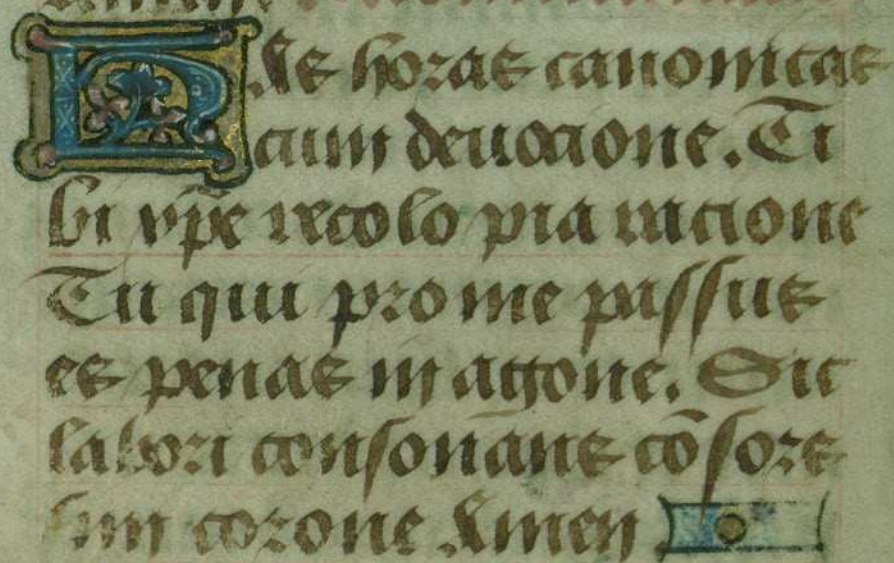 HAs horas canonicas
cum deuocione. Ti
bi xp̄e recolo pia racione
Tu qui pro me passus
es penas in agone. Sic
labori consonans cō sors
sim corone Amen